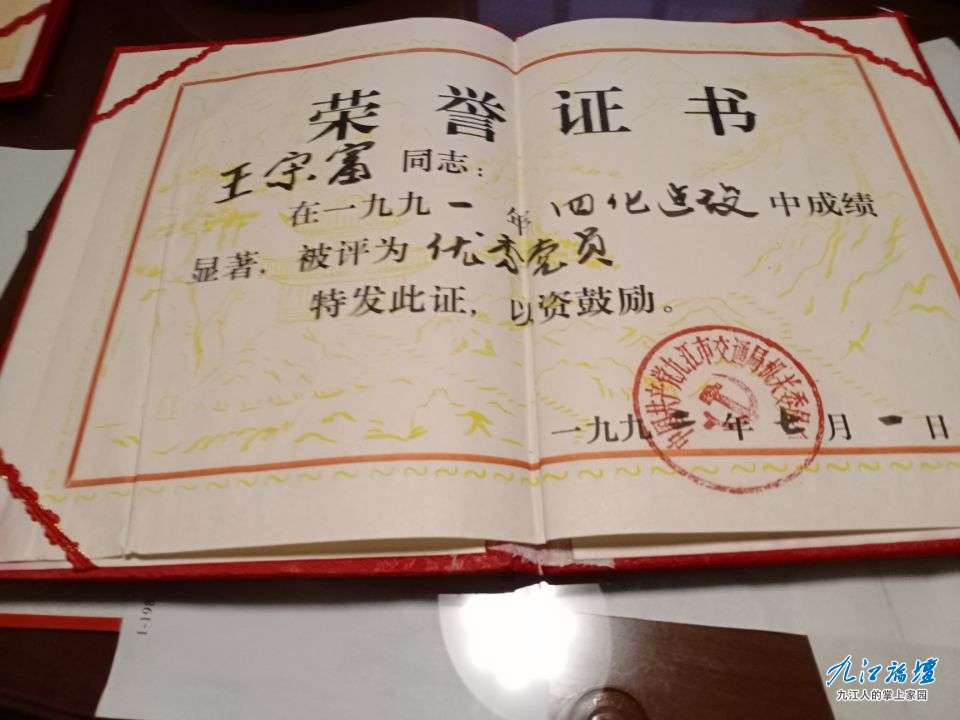 荣誉证书
王宗富同志：
在一九九一年四化建设中成绩
显著，被评为优秀党员
特发此证，以资鼓励。
中国共产党九江市交通局机关委员会
一九九一年七月一日
1-198
九江论坛
九江人的掌上家园